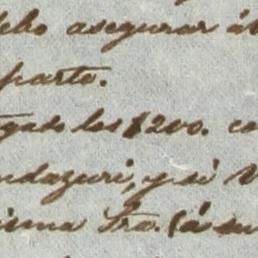 debo asegurar á
parte.
gado los $200. co
ndazuri, y si V
isma Sra. (á su